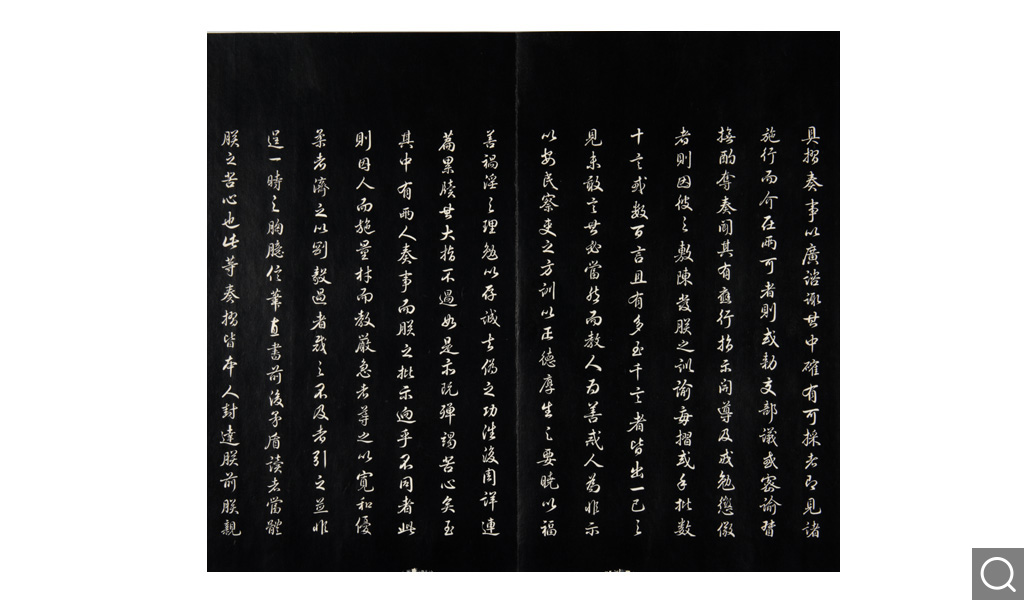 具摺奏事以廣諮諏其中確有可採者即見諸
施行而介在兩可者則或勅交部議或密諭督
撫酌奪奏聞其有應行指示開導及戒勉懲儆
者則因彼之敷陳發朕之訓諭每摺或手批數
十言或數百言且有多至千言者皆出一己之
見未敢言其必當然而教人為善戒人為非示
以安民察吏之方訓以正德厚生之要曉以福
善禍淫之理勉以存誠去偽之功往復周詳連
篇累牘其大指不過如是亦既殫竭苦心矣至
其中有兩人奏事而朕之批示迥乎不同者此
則因人而施量材而教嚴急者導之以寬和優
柔者濟之以剛毅過者裁之不及者引之並非
逞一時之胸臆信筆直書前後矛盾讀者當體
朕之苦心也此等奏摺皆本人封達朕前朕親